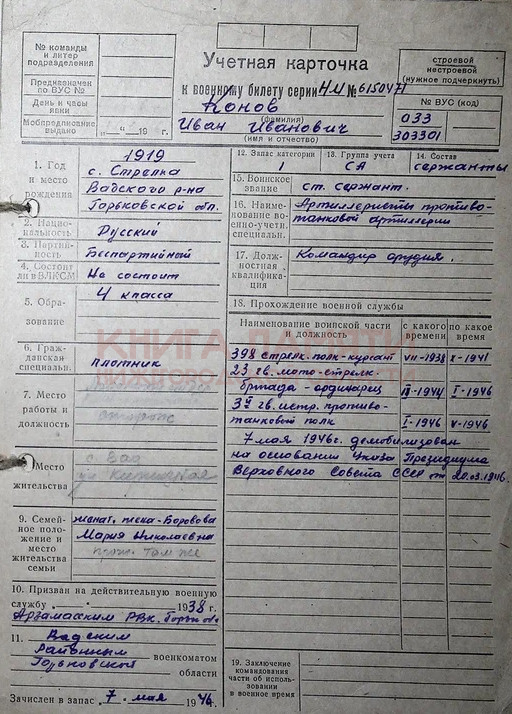 № команды
и литер
подразделения
Предназначен
по ВУС №
День и часы
явки
Мобпредписание
выдано „ “ 19 г.
Учетная карточка
к военному билету серии НИ № 6150471
Конов
(фамилия)
Иван Иванович
(имя и отчество)
строевой
нестроевой
(нужное подчеркнуть)
№ ВУС (код)
033
303301
1. Год
и место
рождения
1919
с. Стрелка
Вадского р-на
Горьковской обл.
2. Нацио-
нальность
Русский
3. Партий-
ность
Беспартийный
4. Состоит
ли в ВЛКСМ
Не состоит
5. Обра-
зование
4 класса
6. Граж-
данская
специальн.
плотник
7. Место
работы и
должность
сторож
8. Место
жительства
с. Вад
ул.
9. Семей-
ное поло-
жение и
место
жительства
семьи
женат. жена - Боровова
Мария Николаевна
прож. там же
10. Призван на действительную военную
службу 1938 г.
Арзамасским РВк. Горьк. обл.
11. Вадским
Районным
военкоматом
Горьковской
области
Зачислен в запас „7“ мая 1946 г.
12. Запас категории
1
13. Группа учета
СА
14. Состав
сержанты
15. Воинское
звание
ст. сержант.
16. Наиме-
нование во-
енно-учетн.
специальн.
Артиллеристы противо-
танковой артиллерии
17. Долж-
ностная
квалифика-
ция
Командир орудия.
18. Прохождение военной службы
Наименование воинской части
и должность
с какого
времени
по какое
время
398 стрелк. полк - курсант VII-1938 X-1941
23 гв. мото-стрелк.
бригада - ординарец III-1944 I-1946
3й гв. истр. противо-
танковый полк I-1946 V-1946
7 мая 1946г. демобилизован
на основании Указа Президиума
Верховного Совета СССР от 20.03.1946.
19. Заключение
командования
части об исполь-
зовании
в военное время
КНИГА ПАМЯТИ
НИЖЕГОРОДСКОЙ ОБЛАСТИ